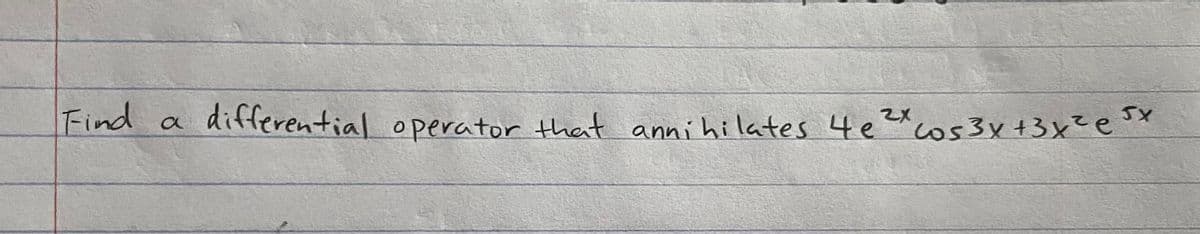 Find a differential operator that annihilates 4e²ˣcos3x+3x²e⁵ˣ